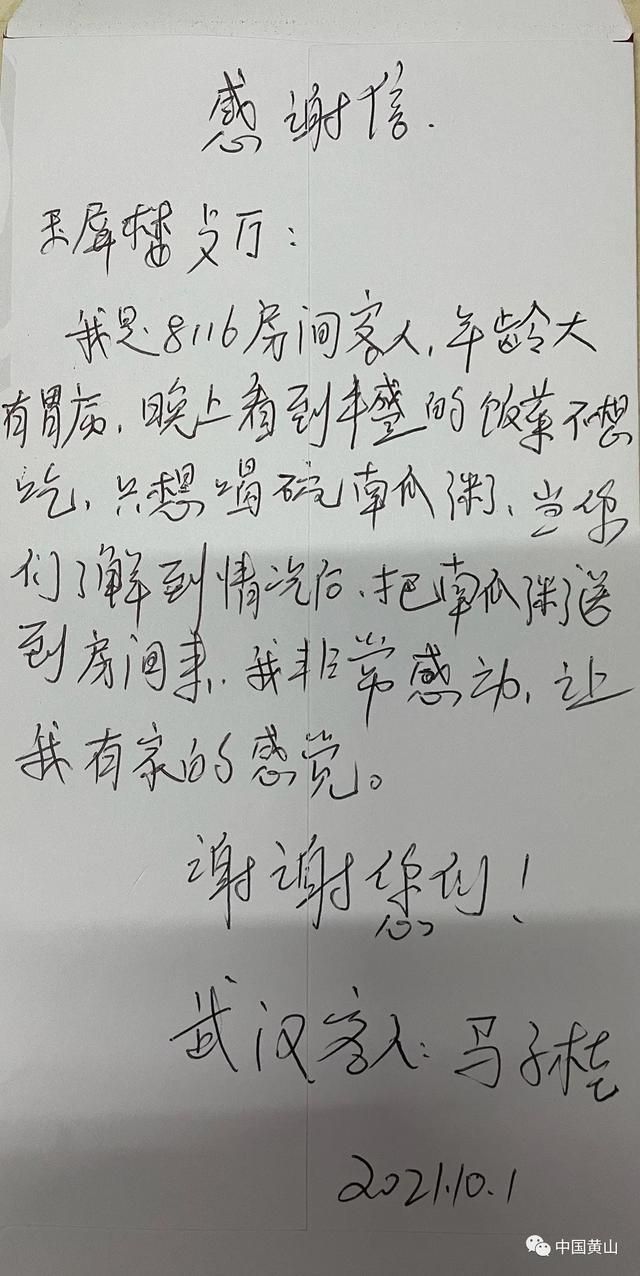 感谢信.
玉屏楼餐厅:
我是8116房间客人,年龄大
有胃病,晚上看到丰盛的饭菜不想
吃,只想喝碗南瓜粥,当你
们了解到情况后,把南瓜粥送
到房间来,我非常感动,让
我有家的感觉。
谢谢您们!
武汉客人:马子
2021.10.1
中国黄山